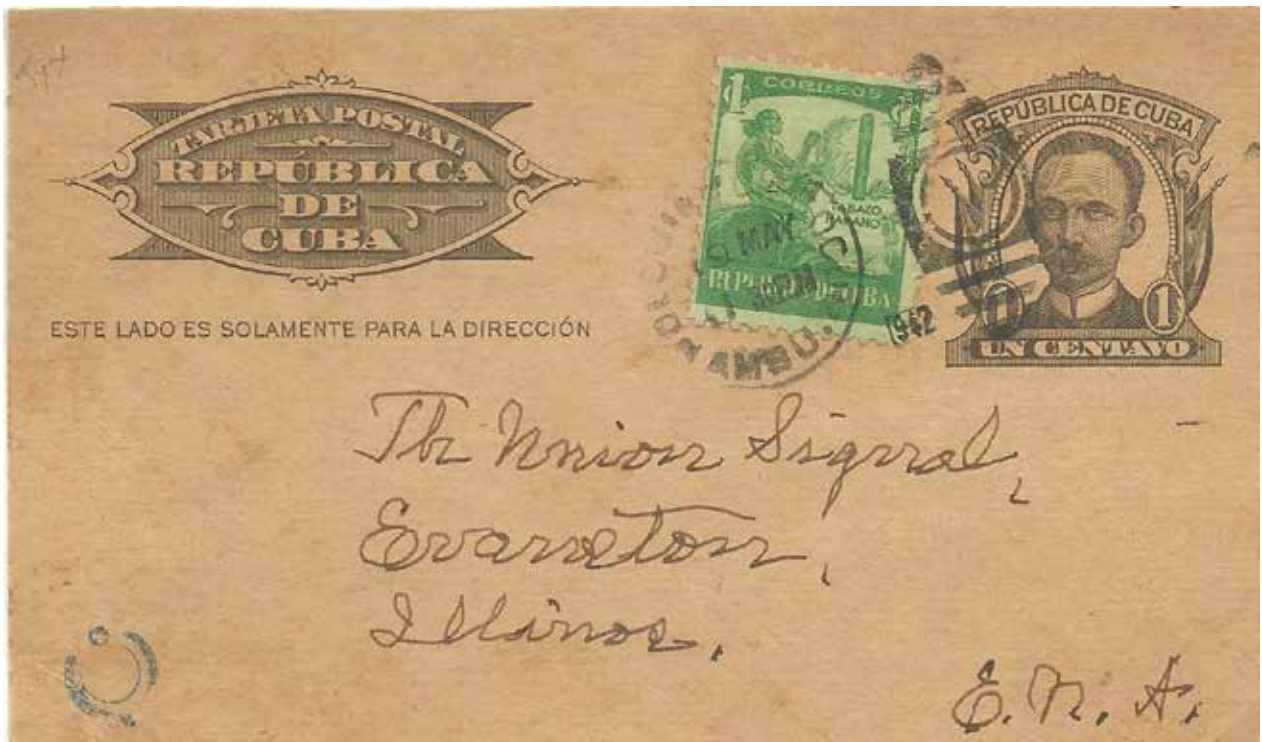 TARJETA POSTAL
REPÚBLICA
DE
CUBA
ESTE LADO ES SOLAMENTE PARA LA DIRECCIÓN
1
CORREOS
TABACO
HABANO
REPUBLICA DE CUBA
MAY
1942
REPÚBLICA DE CUBA
1 1
UN CENTAVO
The Union Signal,
Evanston,
Illinos,
E. N. A.